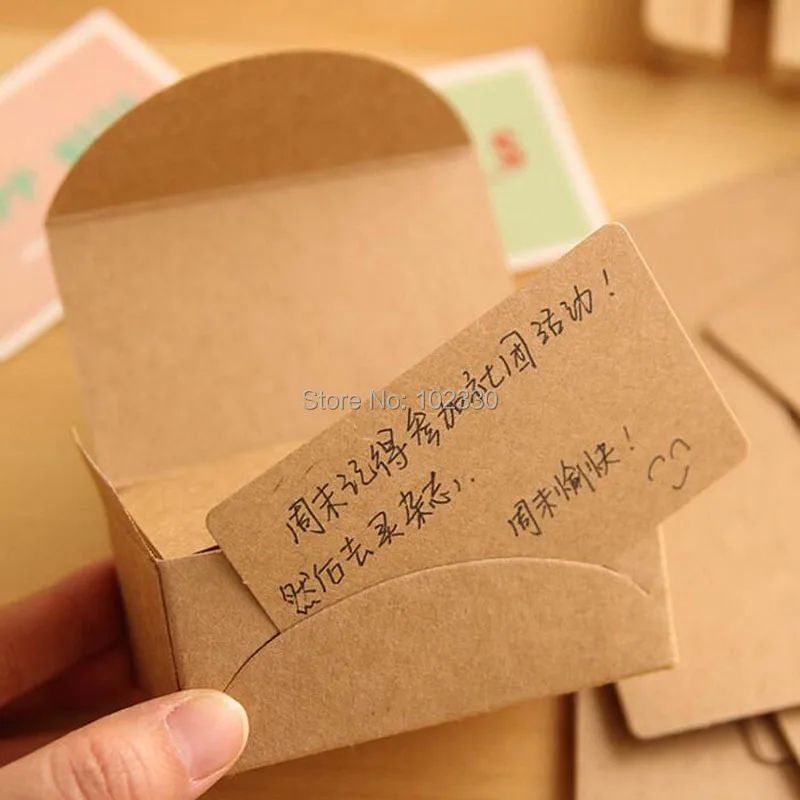 周末记得参加社团活动！
然后去买杂志，.
周末愉快！
Store No: 102330